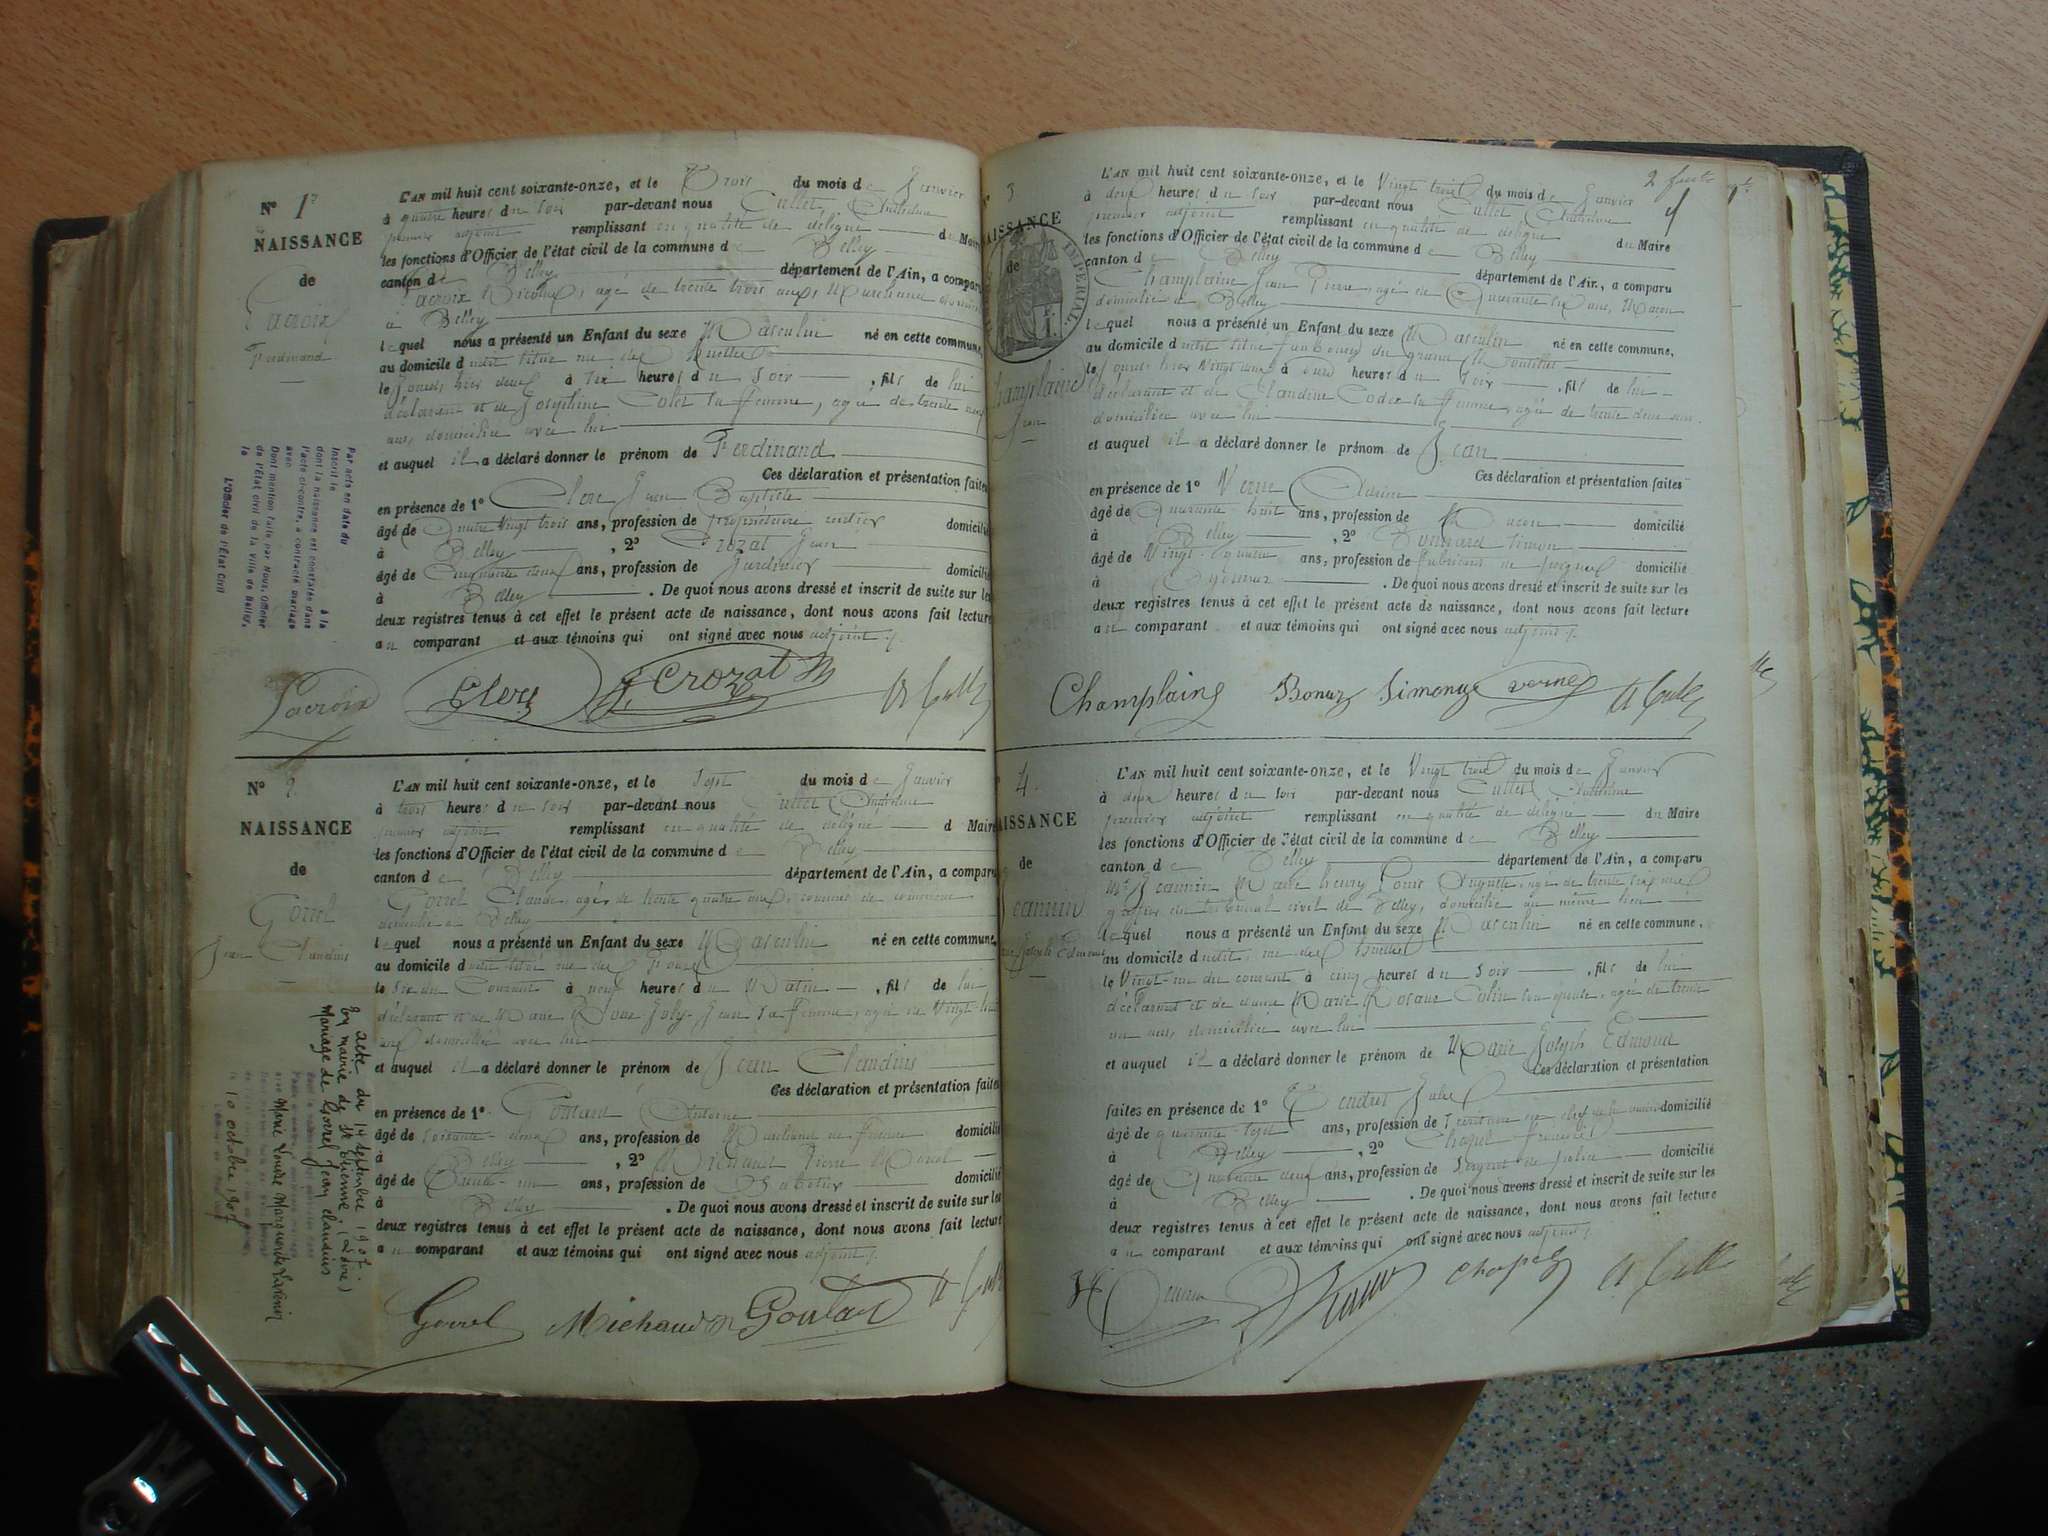 Nº 1er
NAISSANCE
de
Lacroix
Ferdinand
L'AN mil huit cent soixante-onze, et le Trois du mois de Janvier
à quatre heures du soir par-devant nous Cullet Anthelme
premier adjoint remplissant en qualité de délégué du Maire
les fonctions d'Officier de l'état civil de la commune de Belley
canton de Belley département de l'Ain, a comparu
Lacroix Nicolas, âgé de trente trois ans, domicilié
à Belley
lequel nous a présenté un Enfant du sexe Masculin né en cette commune,
au domicile dudit situé rue des
le jour d'hier deux à six heures du soir, fils de lui
déclarant et de Joséphine Colin sa femme, âgée de trente neuf
ans, domiciliée avec lui
et auquel il a déclaré donner le prénom de Ferdinand
Ces déclaration et présentation faites
en présence de 1º Clerc Jean Baptiste
âgé de Quatre Vingt trois ans, profession de propriétaire rentier domicilié
à Belley, 2º Crozat Jean
âgé de Cinquante deux ans, profession de Jardinier domicilié
à Belley. De quoi nous avons dressé et inscrit de suite sur les
deux registres tenus à cet effet le présent acte de naissance, dont nous avons fait lecture
au comparant et aux témoins qui ont signé avec nous adjoint
Par acte en date du
à la
Inscrit le
dont la naissance est constatée dans
l'acte ci-contre, a contracté mariage
avec
Dont mention faite par Nous, Officier
de l'État civil de la Ville de Belley,
le
L'Officier de l'État Civil
Lacroix Clerc Crozat
Nº 2
NAISSANCE
de
Gorrel
Jean Claudius
L'AN mil huit cent soixante-onze, et le Sept du mois de Janvier
à trois heures du soir par-devant nous Cullet Anthelme
premier adjoint remplissant en qualité de délégué d Maire
les fonctions d'Officier de l'état civil de la commune de Belley
canton de Belley département de l'Ain, a comparu
Gorrel Claude, âgé de trente quatre ans, commis de commerce
domicilié à Belley
lequel nous a présenté un Enfant du sexe Masculin né en cette commune,
au domicile dudit situé rue des
le six du Courant à neuf heures du Matin, fils de lui
déclarant et de Marie Joly Jean sa femme, âgée de Vingt-huit
ans domiciliée avec lui
et auquel il a déclaré donner le prénom de Jean Claudius
Ces déclaration et présentation faites
en présence de 1º Goutard Antoine
âgé de soixante-deux ans, profession de Marchand de domicilié
à Belley, 2º Michaud Pierre
âgé de Trente-un ans, profession de Sabotier domicilié
à Belley. De quoi nous avons dressé et inscrit de suite sur les
deux registres tenus à cet effet le présent acte de naissance, dont nous avons fait lecture
au comparant et aux témoins qui ont signé avec nous adjoint
Par acte du 14 septembre 1907
en mairie de St Etienne (Loire)
Mariage de Gorrel Jean claudius
Marie Louise Marguerite
10 octobre 1907
Gorrel Michaud Goutard
2 feuille
3
NAISSANCE
de
IMPERIAL
Champlaine
Jean
L'AN mil huit cent soixante-onze, et le Vingt trois du mois de Janvier
à deux heures du soir par-devant nous Cullet Anthelme
premier adjoint remplissant en qualité de délégué du Maire
les fonctions d'Officier de l'état civil de la commune de Belley
canton de Belley département de l'Ain, a comparu
Champlaine Jean Pierre, âgé de Quarante ans, Maçon
domicilié à Belley
lequel nous a présenté un Enfant du sexe Masculin né en cette commune,
au domicile dudit situé faubourg du grand
le jour d'hier Vingt deux à onze heures du soir, fils de lui
déclarant et de Claudine Codex sa femme, âgée de trente deux ans
domiciliée avec lui
et auquel il a déclaré donner le prénom de Jean
Ces déclaration et présentation faites
en présence de 1º Verne
âgé de Quarante-huit ans, profession de Maçon domicilié
à Belley, 2º Bonnard Simon
âgé de Vingt-quatre ans, profession de fabricant de peignes domicilié
à Oyonnax. De quoi nous avons dressé et inscrit de suite sur les
deux registres tenus à cet effet le présent acte de naissance, dont nous avons fait lecture
au comparant et aux témoins qui ont signé avec nous adjoint
Champlaine Simon verne
4
NAISSANCE
de
Jeannin
Joseph Edmond
L'AN mil huit cent soixante-onze, et le Vingt trois du mois de Janvier
à deux heures du soir par-devant nous Cullet Anthelme
premier adjoint remplissant en qualité de délégué du Maire
les fonctions d'Officier de l'état civil de la commune de Belley
canton de Belley département de l'Ain, a comparu
Mr Jeannin Marie henry Louis Auguste, âgé de trente six ans
greffier du tribunal civil de Belley, domicilié au même lieu
lequel nous a présenté un Enfant du sexe Masculin né en cette commune,
au domicile dudit, rue des
le Vingt-un du courant à cinq heures du soir, fils de lui
déclarant et de dame Marie Rosane Colin son épouse, âgée de trente
un ans, domiciliée avec lui
et auquel il a déclaré donner le prénom de Marie Joseph Edmond
Ces déclaration et présentation
faites en présence de 1º Jules
âgé de quarante-sept ans, profession de Secrétaire en chef de la mairie domicilié
à Belley, 2º Chapel François
âgé de Quarante deux ans, profession de Sergent de police domicilié
à Belley. De quoi nous avons dressé et inscrit de suite sur les
deux registres tenus à cet effet le présent acte de naissance, dont nous avons fait lecture
au comparant et aux témoins qui ont signé avec nous adjoint
Chapel